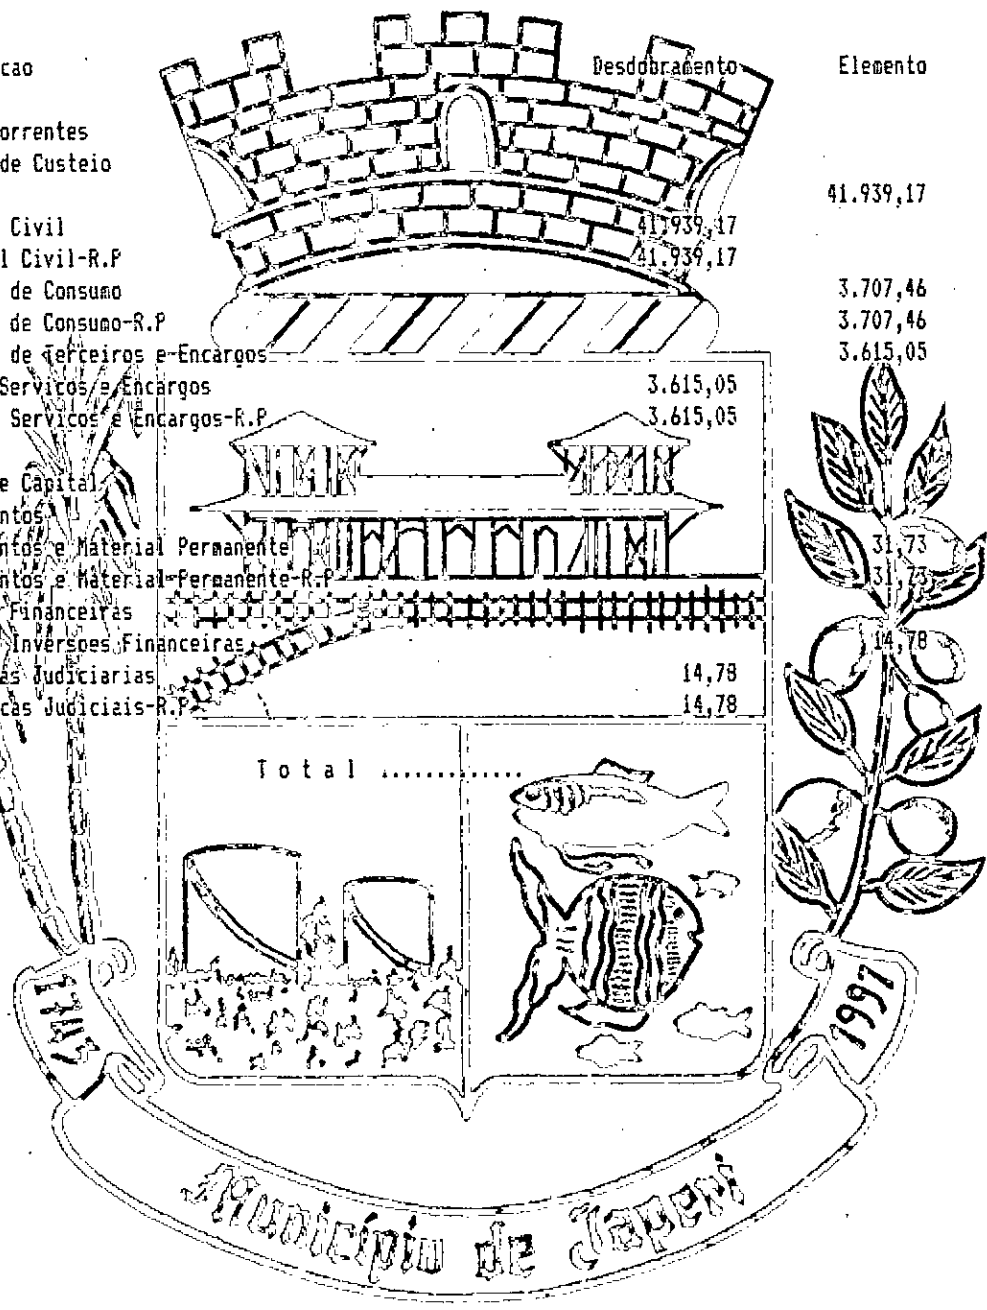 cao Desdobramento Elemento
orrentes
de Custeio
41.939,17
Civil 41.939,17
l Civil-R.P 41.939,17
de Consumo 3.707,46
de Consumo-R.P 3.707,46
de Terceiros e Encargos 3.615,05
Servicos e Encargos 3.615,05
Servicos e Encargos-R.P 3.615,05
e Capital
ntos
ntos e Material Permanente 31,73
ntos e Material Permanente-R.P 31,73
Financeiras
Inversoes Financeiras 14,78
as Judiciarias 14,78
cas Judiciais-R.P 14,78
Total .............
1991
Município de Japeri